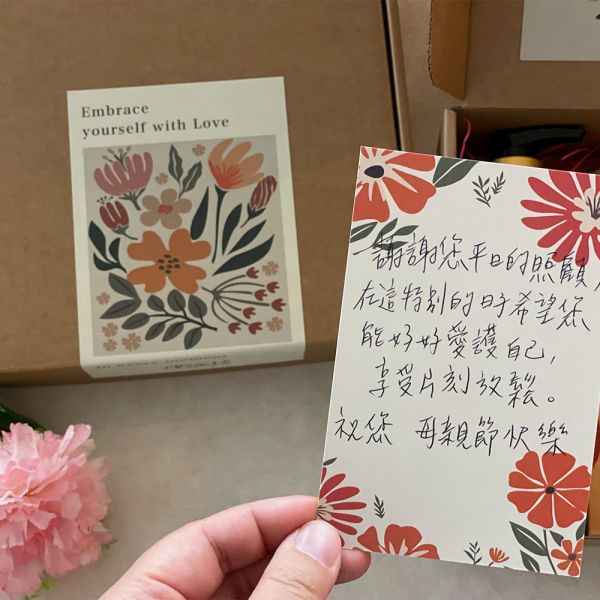 Embrace
yourself with Love
in every moment
謝謝您平日的照顧，
在這特別的日子希望您
能好好愛護自己，
享受片刻放鬆。
祝您 母親節快樂